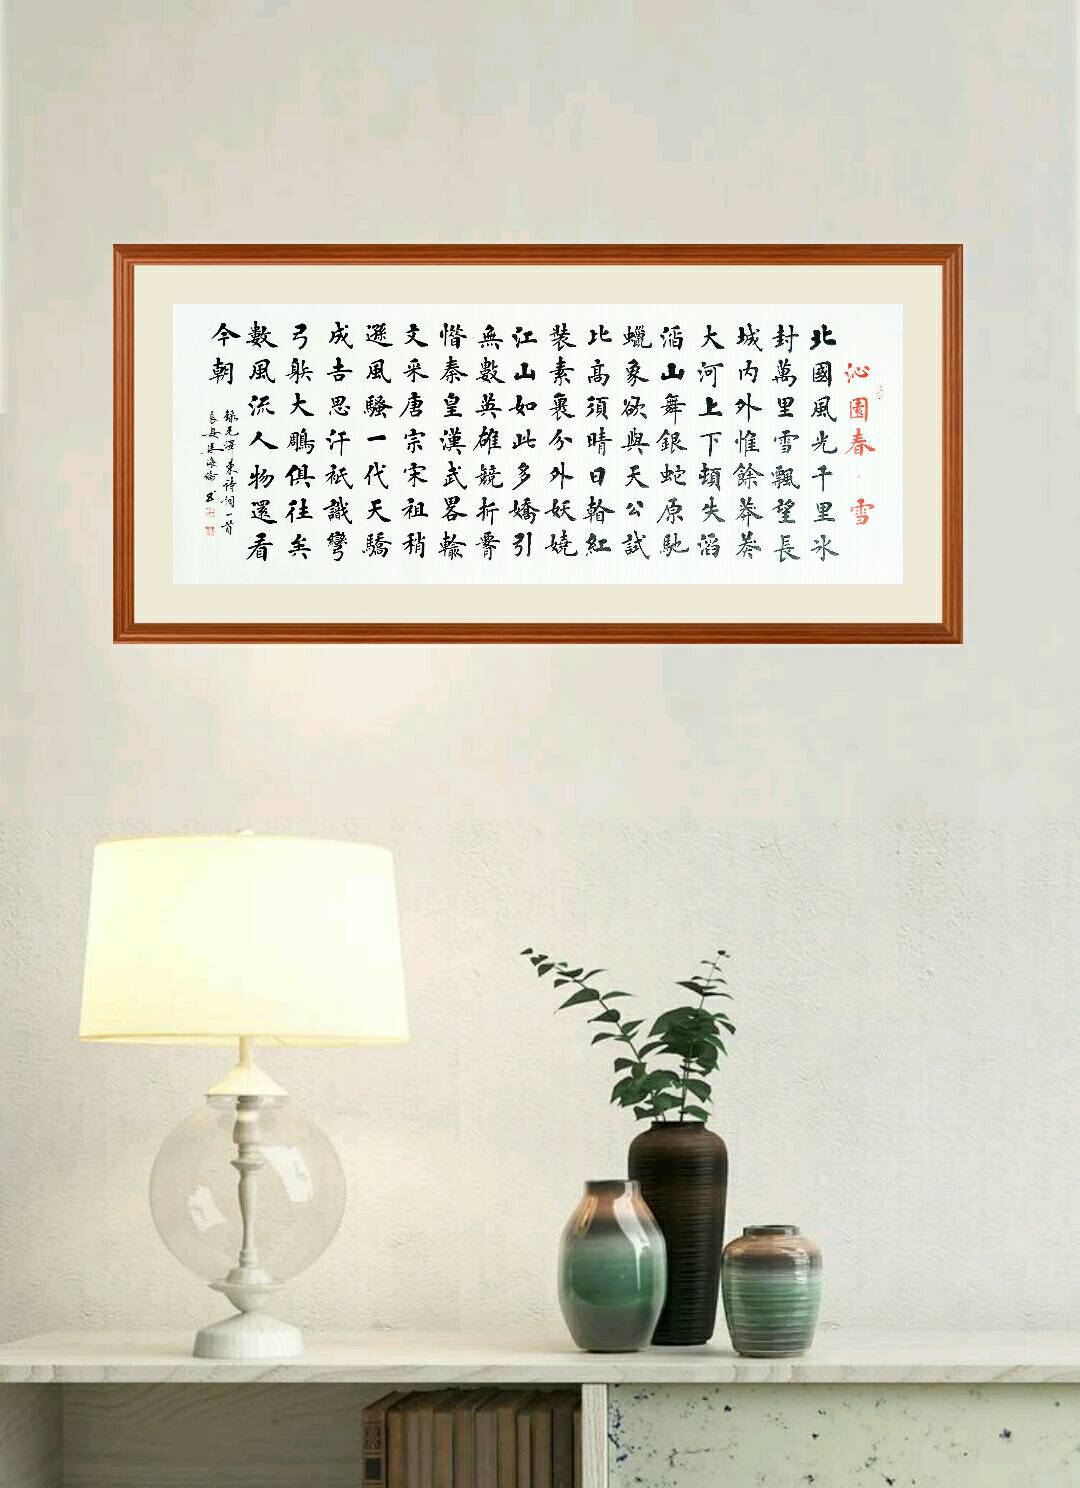 沁園春·雪
北國風光千里冰
封萬里雪飄望長
城内外惟餘莽莽
大河上下頓失滔
滔山舞銀蛇原馳
蠟象欲與天公試
比高須晴日看紅
裝素裹分外妖嬈
江山如此多嬌引
無數英雄競折腰
惜秦皇漢武畧輸
文采唐宗宋祖稍
遜風騷一代天驕
成吉思汗衹識彎
弓射大鵰俱往矣
數風流人物還看
今朝
録毛澤東詩詞一首
長安